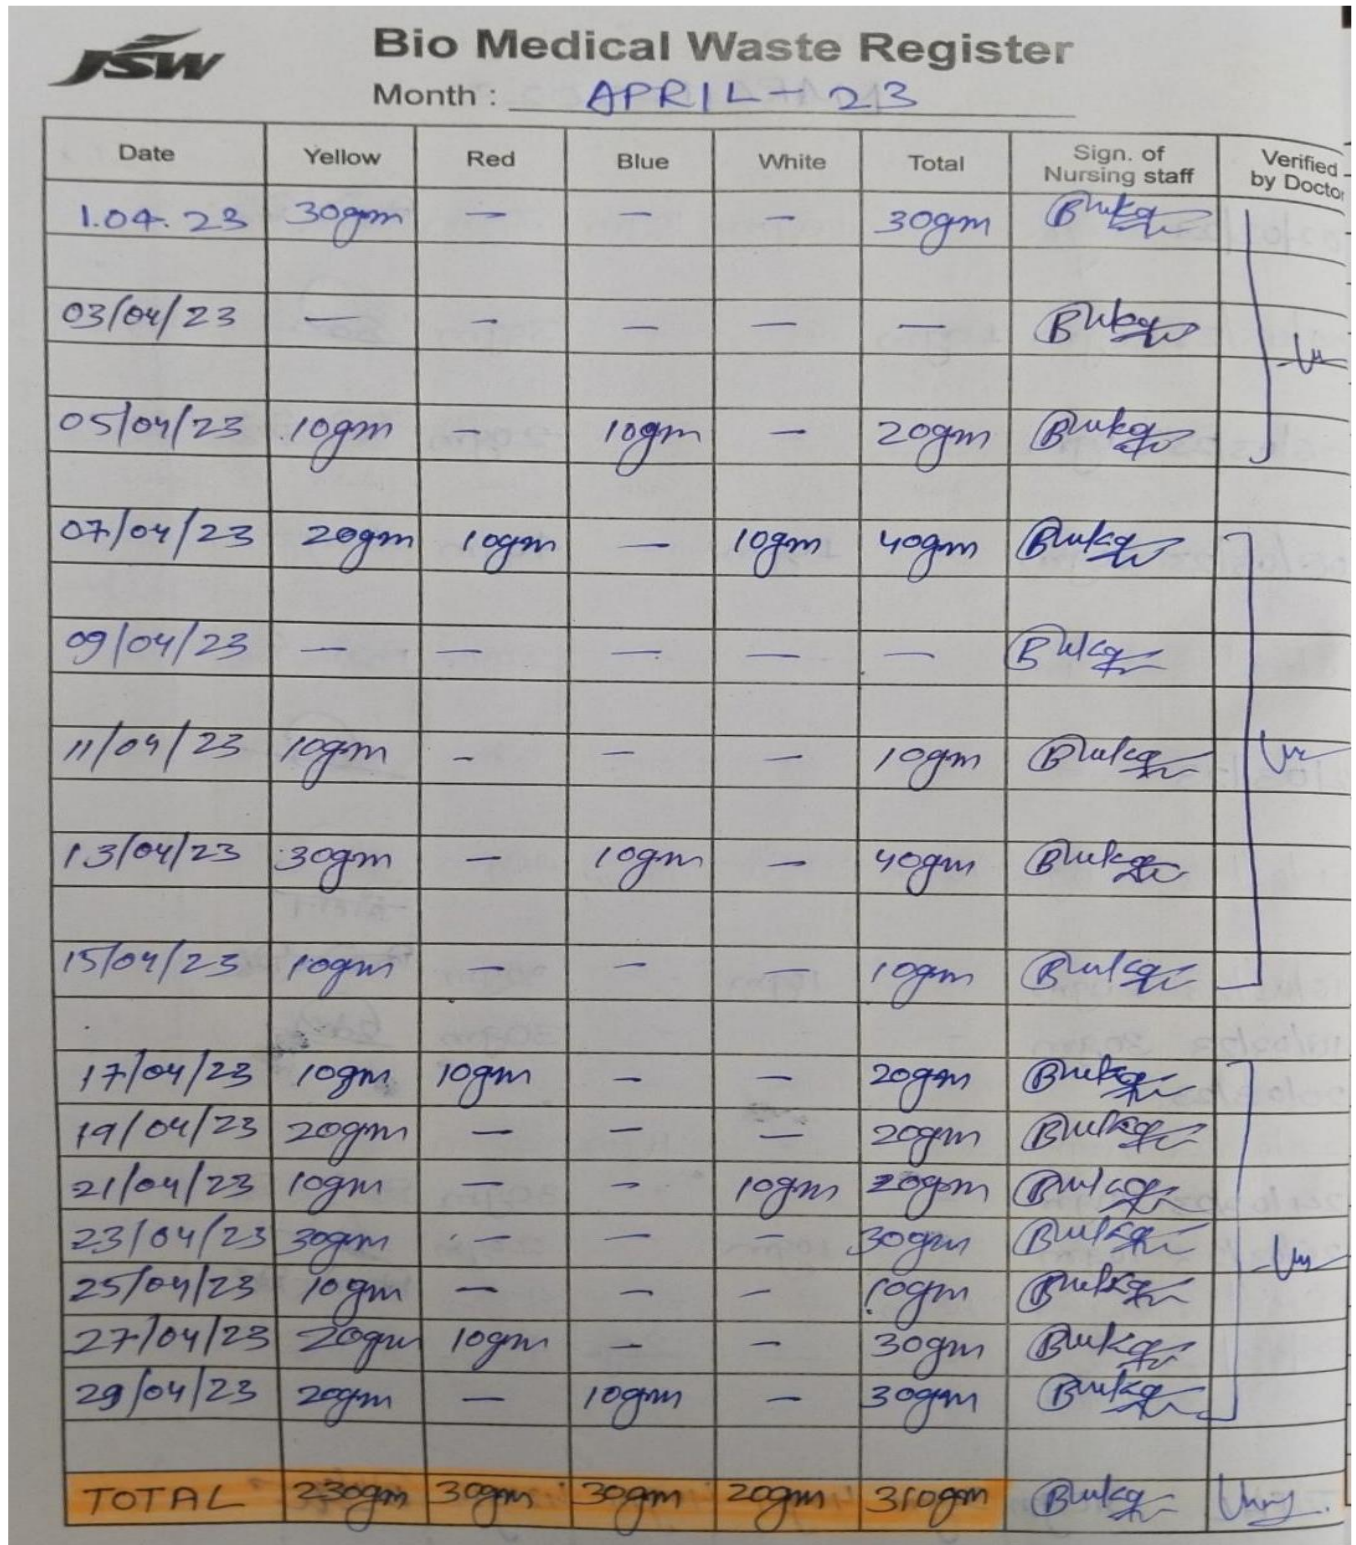 JSW
Bio Medical Waste Register
Month : APRIL - 23
Date Yellow Red Blue White Total Sign. of Nursing staff Verified by Docto
1.04.23 30gm — — — 30gm
03/04/23 — — — — —
05/04/23 10gm — 10gm — 20gm
07/04/23 20gm 10gm — 10gm 40gm
09/04/23 — — — — —
11/04/23 10gm — — — 10gm
13/04/23 30gm — 10gm — 40gm
15/04/23 10gm — — — 10gm
17/04/23 10gm 10gm — — 20gm
19/04/23 20gm — — — 20gm
21/04/23 10gm — — 10gm 20gm
23/04/23 30gm — — — 30gm
25/04/23 10gm — — — 10gm
27/04/23 20gm 10gm — — 30gm
29/04/23 20gm — 10gm — 30gm
TOTAL 230gm 30gm 30gm 20gm 310gm